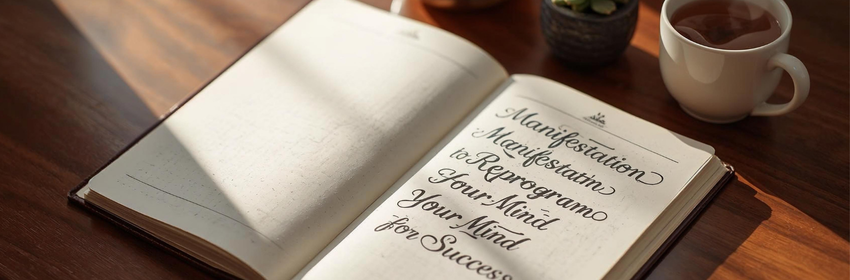 Manifestation
Manifestatn
to Reprogram
Your Mind
Your Mind
for Success